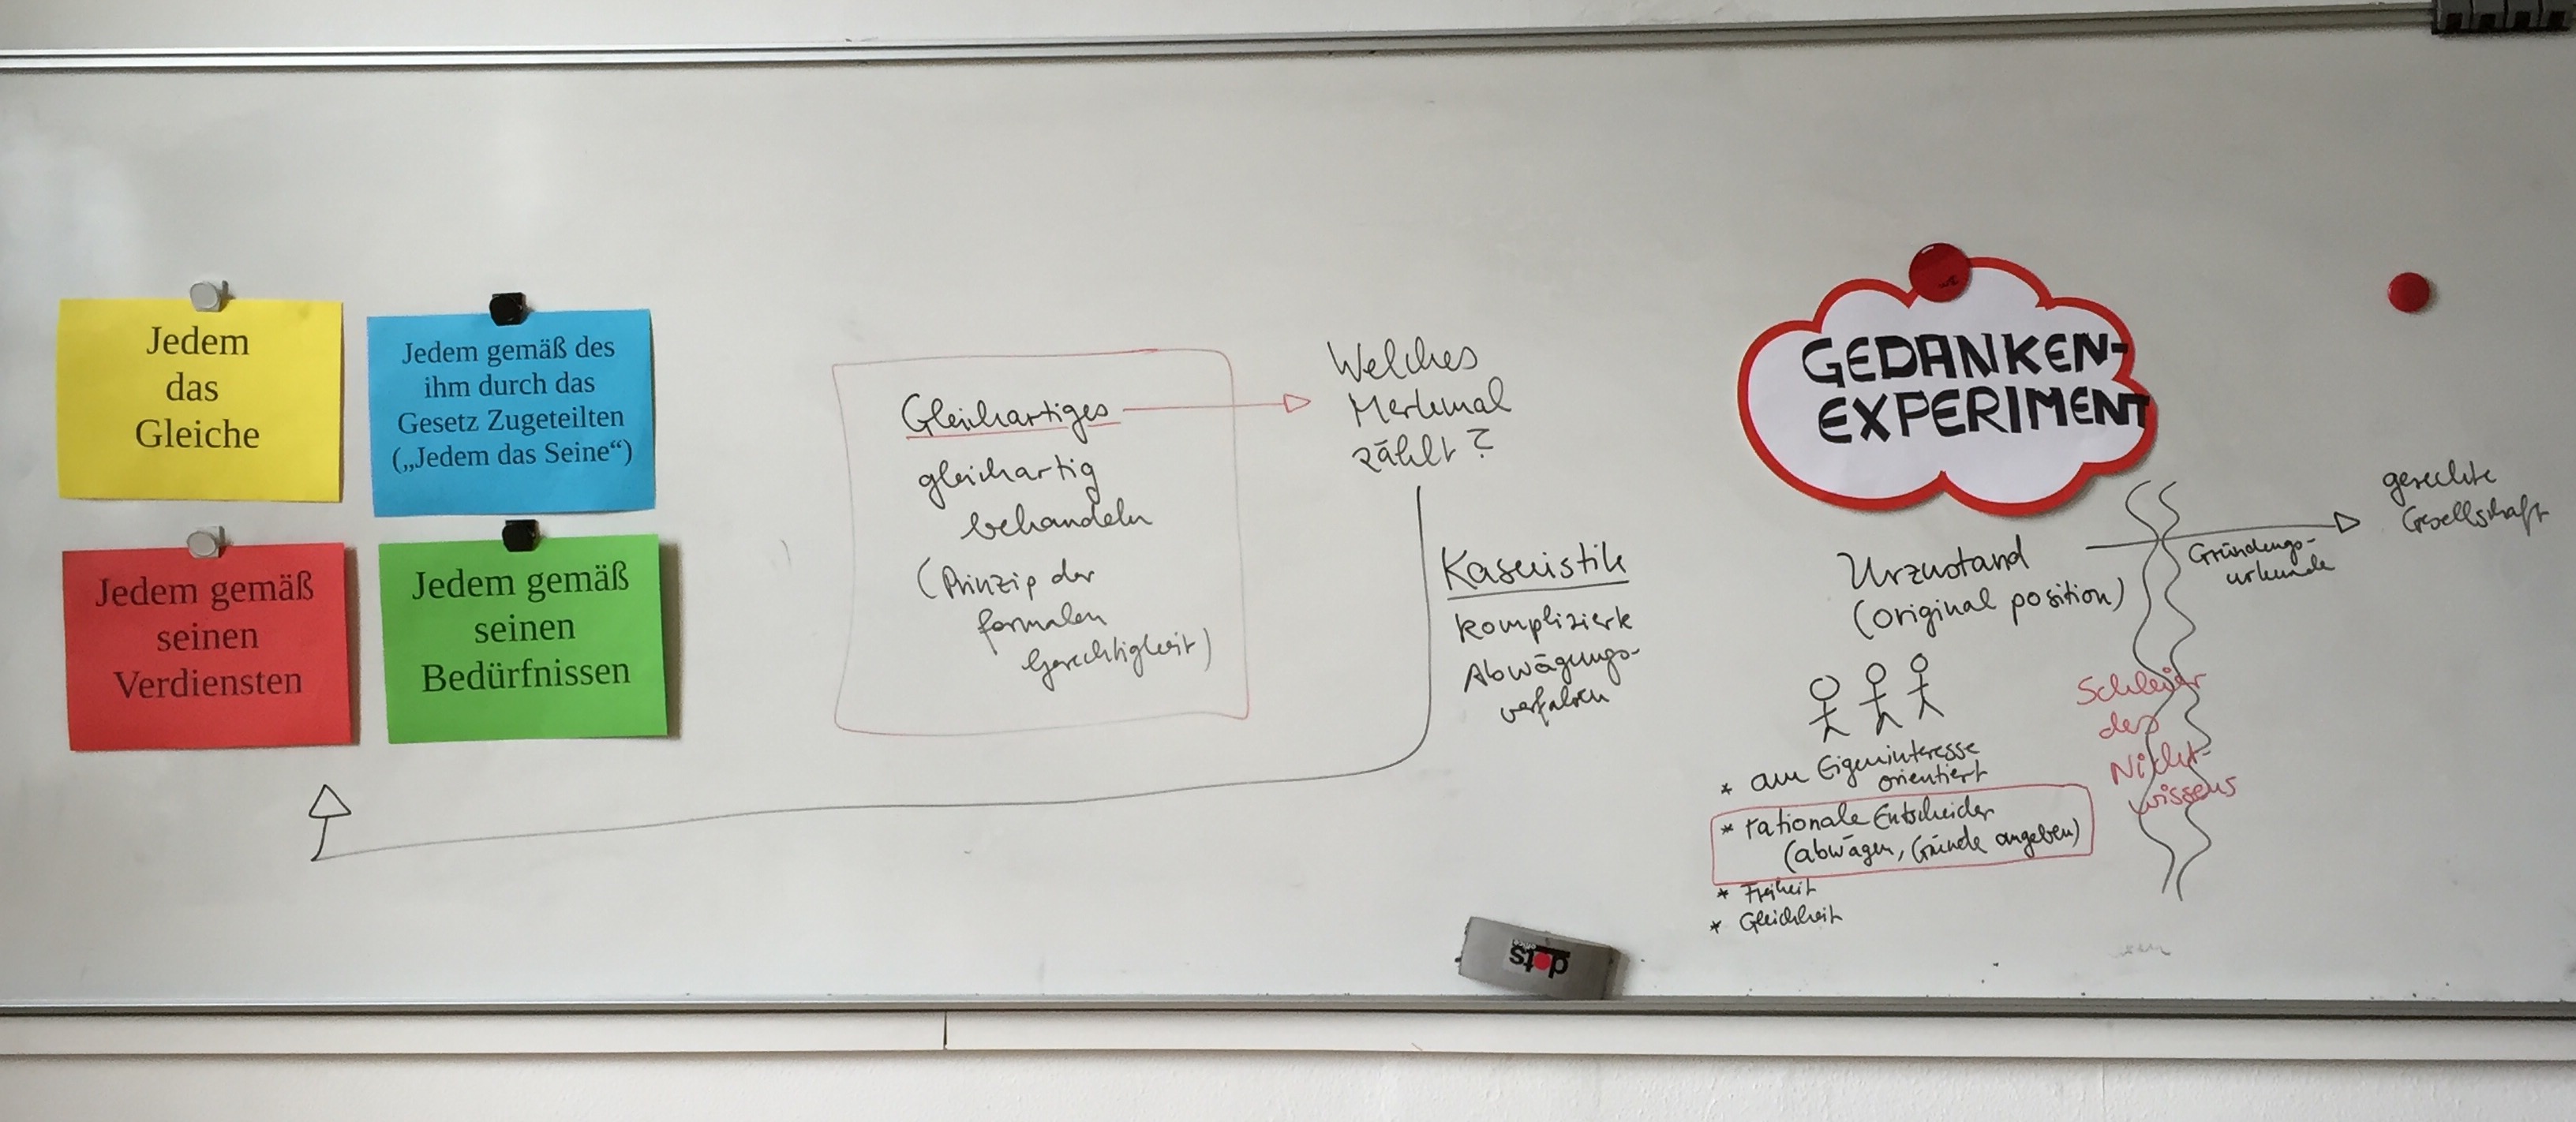 Jedem
das
Gleiche
Jedem gemäß des
ihm durch das
Gesetz Zugeteilten
(„Jedem das Seine“)
Jedem gemäß
seinen
Verdiensten
Jedem gemäß
seinen
Bedürfnissen
Gleichartiges
gleichartig
behandeln
(Prinzip der
formalen
Gerechtigkeit)
Welches
Merkmal
zählt?
Kasuistik
komplizierte
Abwägungs-
verfahren
GEDANKEN-
EXPERIMENT
Urzustand
(original position)
gerechte
Gesellschaft
Gründungs-
urkunde
Schleier
des
Nicht-
wissens
* am Eigeninteresse
orientiert
* rationale Entscheider
(abwägen, Gründe angeben)
* Freiheit
* Gleichheit
dots